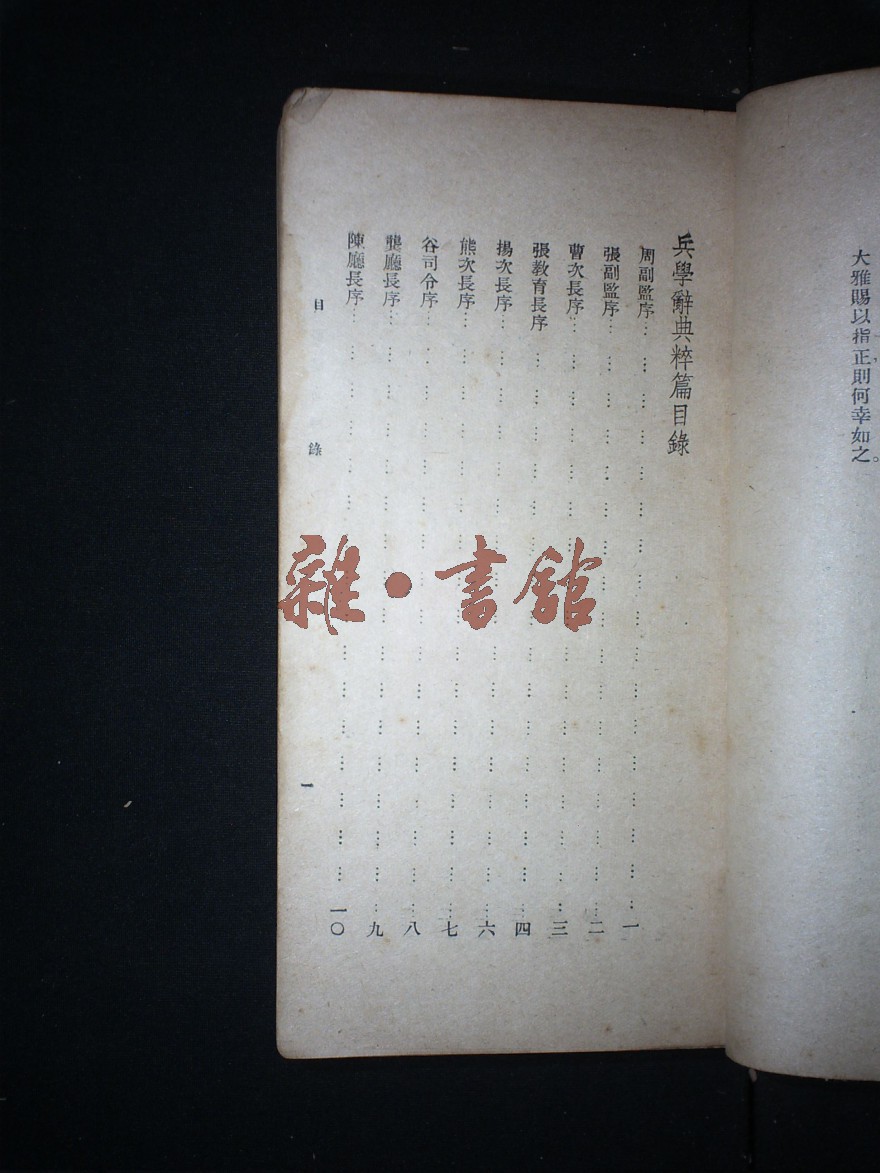 大雅賜以指正則何幸如之。
兵學辭典粹篇目錄
周副監序………………………………………一
張副監序………………………………………二
曹次長序………………………………………三
張教育長序……………………………………四
揚次長序………………………………………六
熊次長序………………………………………七
谷司令序………………………………………八
龔廳長序………………………………………九
陳廳長序………………………………………一〇
目錄 一
雜·書館